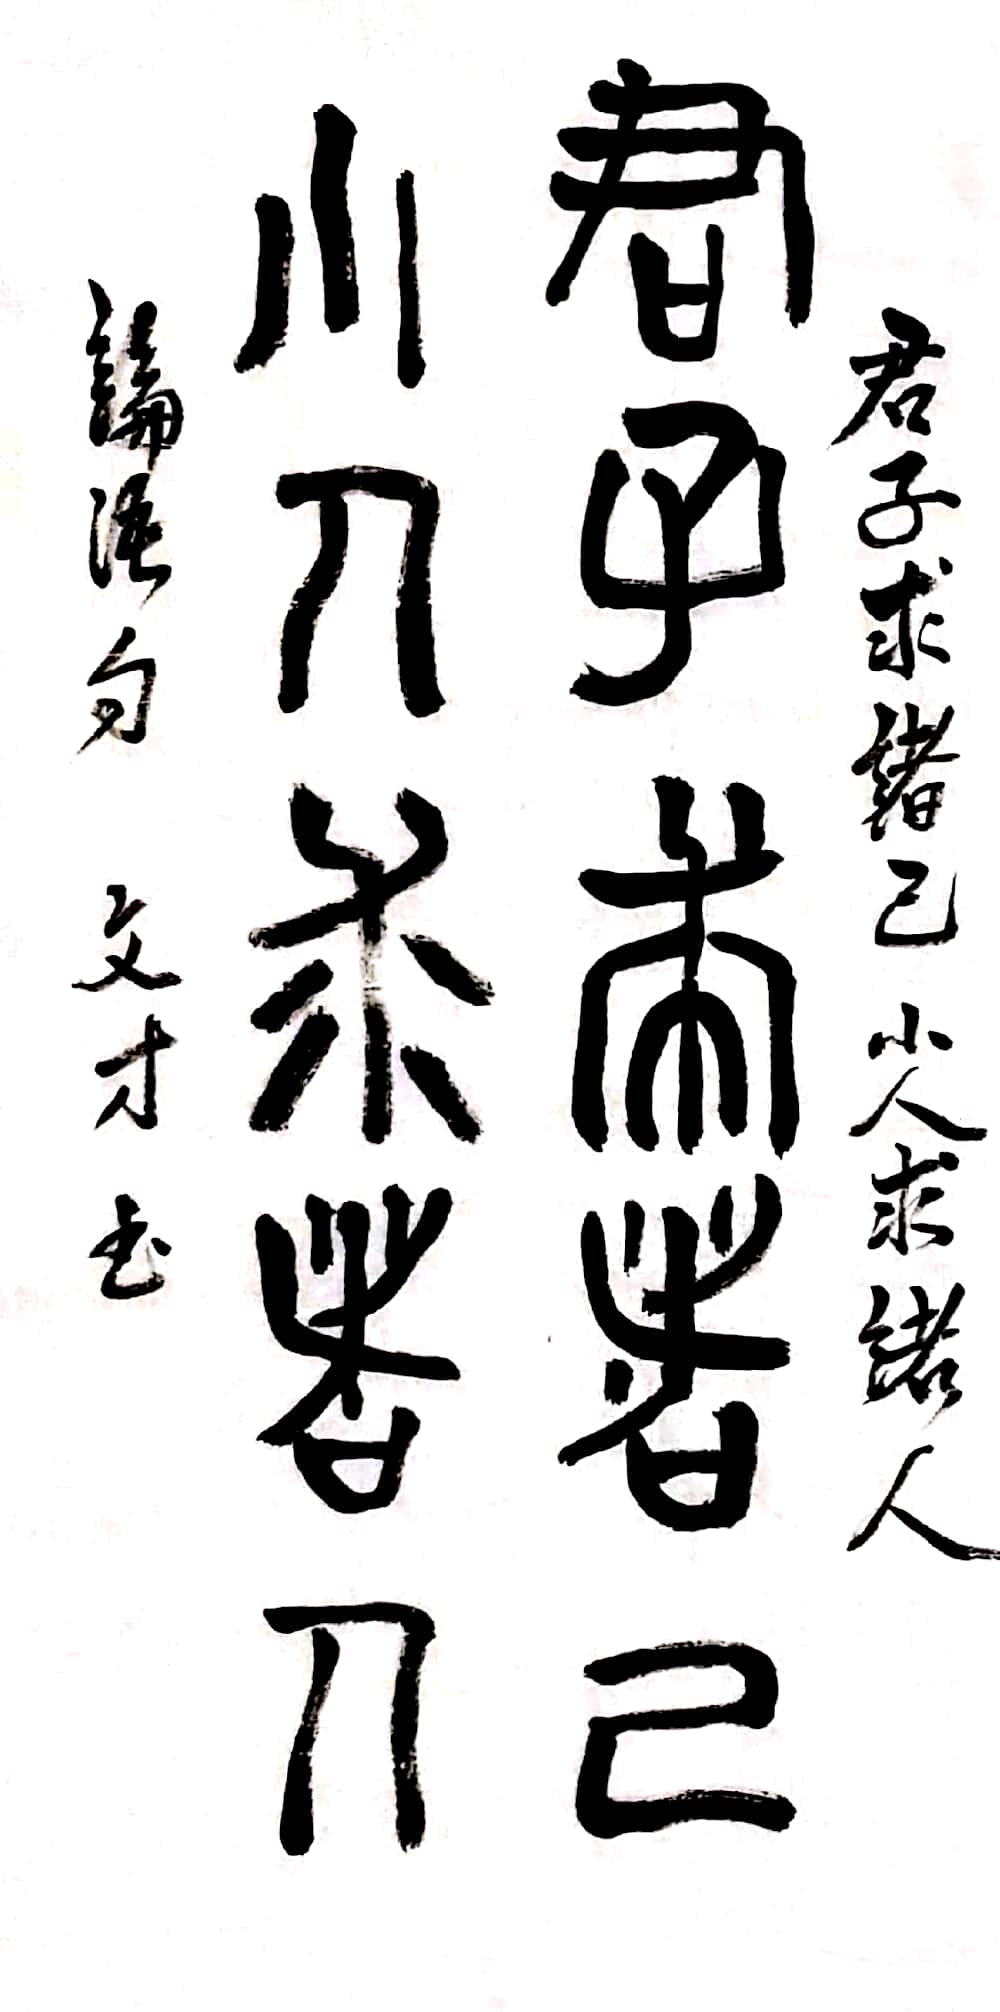 君子求緒己小人求緒人
君子求者己
小人求者人
論語句 文才书